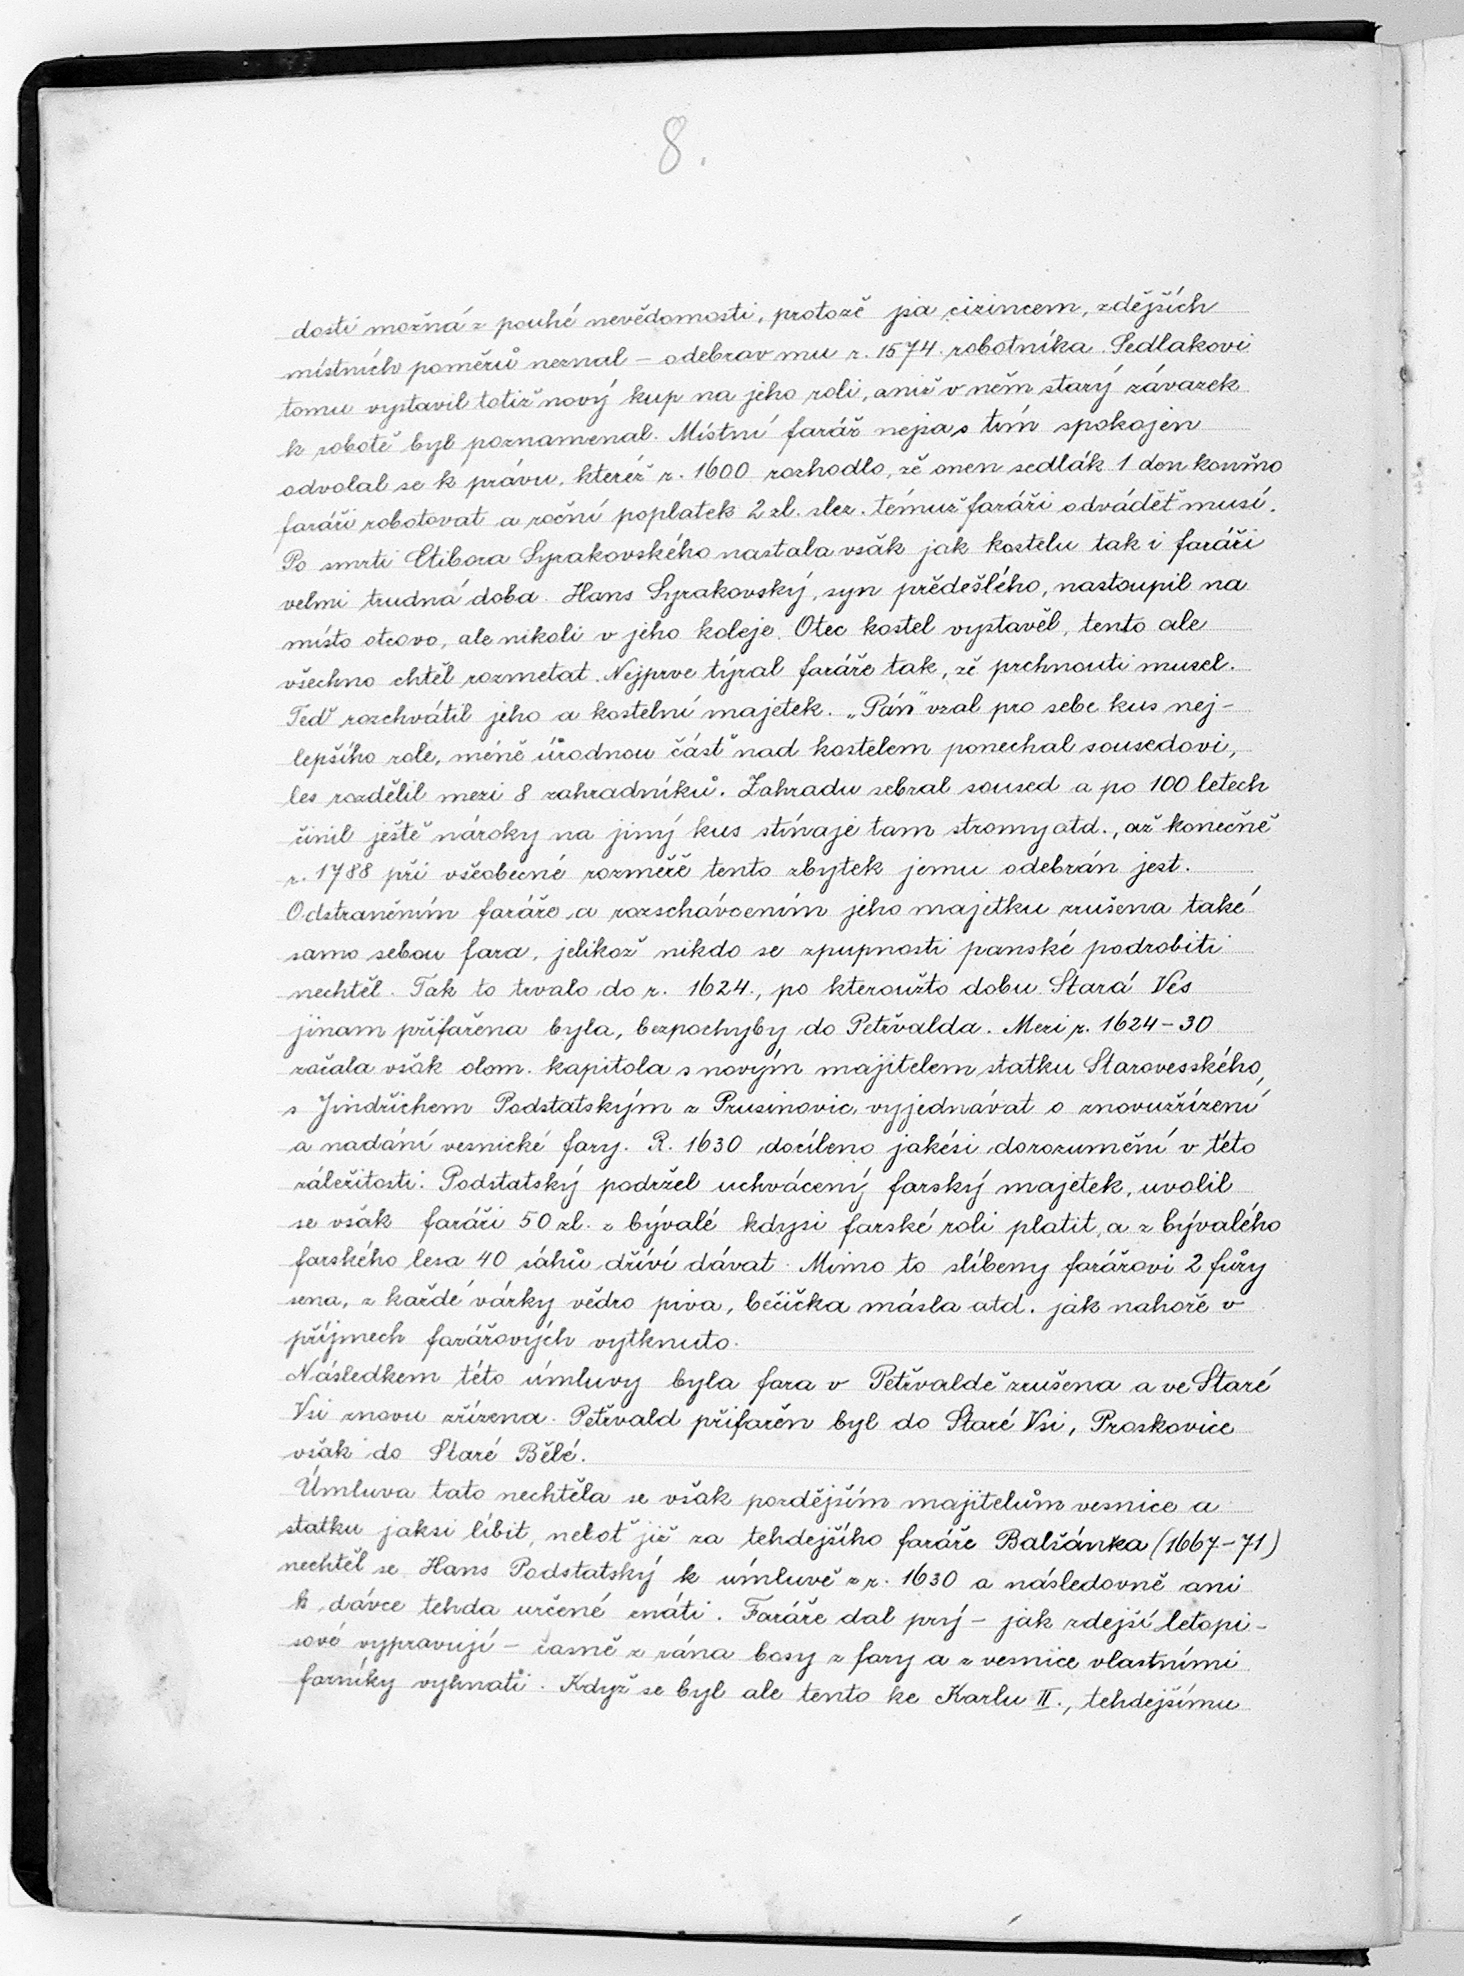 8.
dosti možná z pouhé nevědomosti, protože jsa cizincem, zdějších
místních poměrů neznal – odebrav mu r. 1574. robotníka. Sedlakovi
tomu vystavil totiž nový kup na jeho roli, aniž v něm starý závazek
k robotě byl poznamenal. Místní farář nejsa s tím spokojen
odvolal se k právu, kteréž r. 1600 rozhodlo, že onen sedlák 1 den koňmo
faráři robotovat a roční poplatek 2 zl. slez. témuž faráři odváděť musí.
Po smrti Ctibora Syrakovského nastala však jak kostelu tak i faráři
velmi trudná doba. Hans Syrakovský, syn předešlého, nastoupil na
místo otcovo, ale nikoli v jeho koleje. Otec kostel vystavěl, tento ale
všechno chtěl rozmetat. Nejprve týral faráře tak, že prchnouti musel.
Teď rozchvátil jeho a kostelní majetek. „Pán" vzal pro sebe kus nej-
lepšího role, méně úrodnou část nad kostelem ponechal sousedovi,
les rozdělil mezi 8 zahradníků. Zahradu sebral soused a po 100 letech
činil ještě nároky na jiný kus stínaje tam stromy atd., až konečně
r. 1788 při všeobecné rozměře tento zbytek jemu odebrán jest.
Odstraněním faráře a rozschávcením jeho majetku zrušena také
samo sebou fara, jelikož nikdo se zpupnosti panské podrobiti
nechtěl. Tak to trvalo do r. 1624., po kteroužto dobu Stará Ves
jinam přifařena byla, bezpochyby do Petřvalda. Mezi r. 1624–30
začala však olom. kapitola s novým majitelem statku Starovesského,
s Jindřichem Podstatským z Prusinovic, vyjednávat o znovuzřízení
a nadání vesnické fary. R. 1630 docíleno jakési dorozumění v této
záležitosti: Podstatský podržel uchvácený farský majetek, uvolil
se však faráři 50 zl. z bývalé kdysi farské roli platit, a z bývalého
farského lesa 40 sáhů dříví dávat. Mimo to slíbeny farářovi 2 fůry
sena, z každé várky vědro piva, bečička másla atd. jak nahoře v
příjmech farářových vytknuto.
Následkem této úmluvy byla fara v Petřvaldě zrušena a ve Staré
Vsi znovu zřízena. Petřvald přifařen byl do Staré Vsi, Proskovice
však do Staré Bělé.
Úmluva tato nechtěla se však pozdějším majitelům vesnice a
statku jaksi líbit, neboť již za tehdejšího faráře Balšánka (1667–71)
nechtěl se Hans Podstatský k úmluvě z r. 1630 a následovně ani
k dávce tehda určené znáti. Faráře dal prý – jak zdejší letopi-
sové vypravují – časně z rána bosy z fary a z vesnice vlastními
farníky vyhnati. Když se byl ale tento ke Karlu II., tehdejšímu